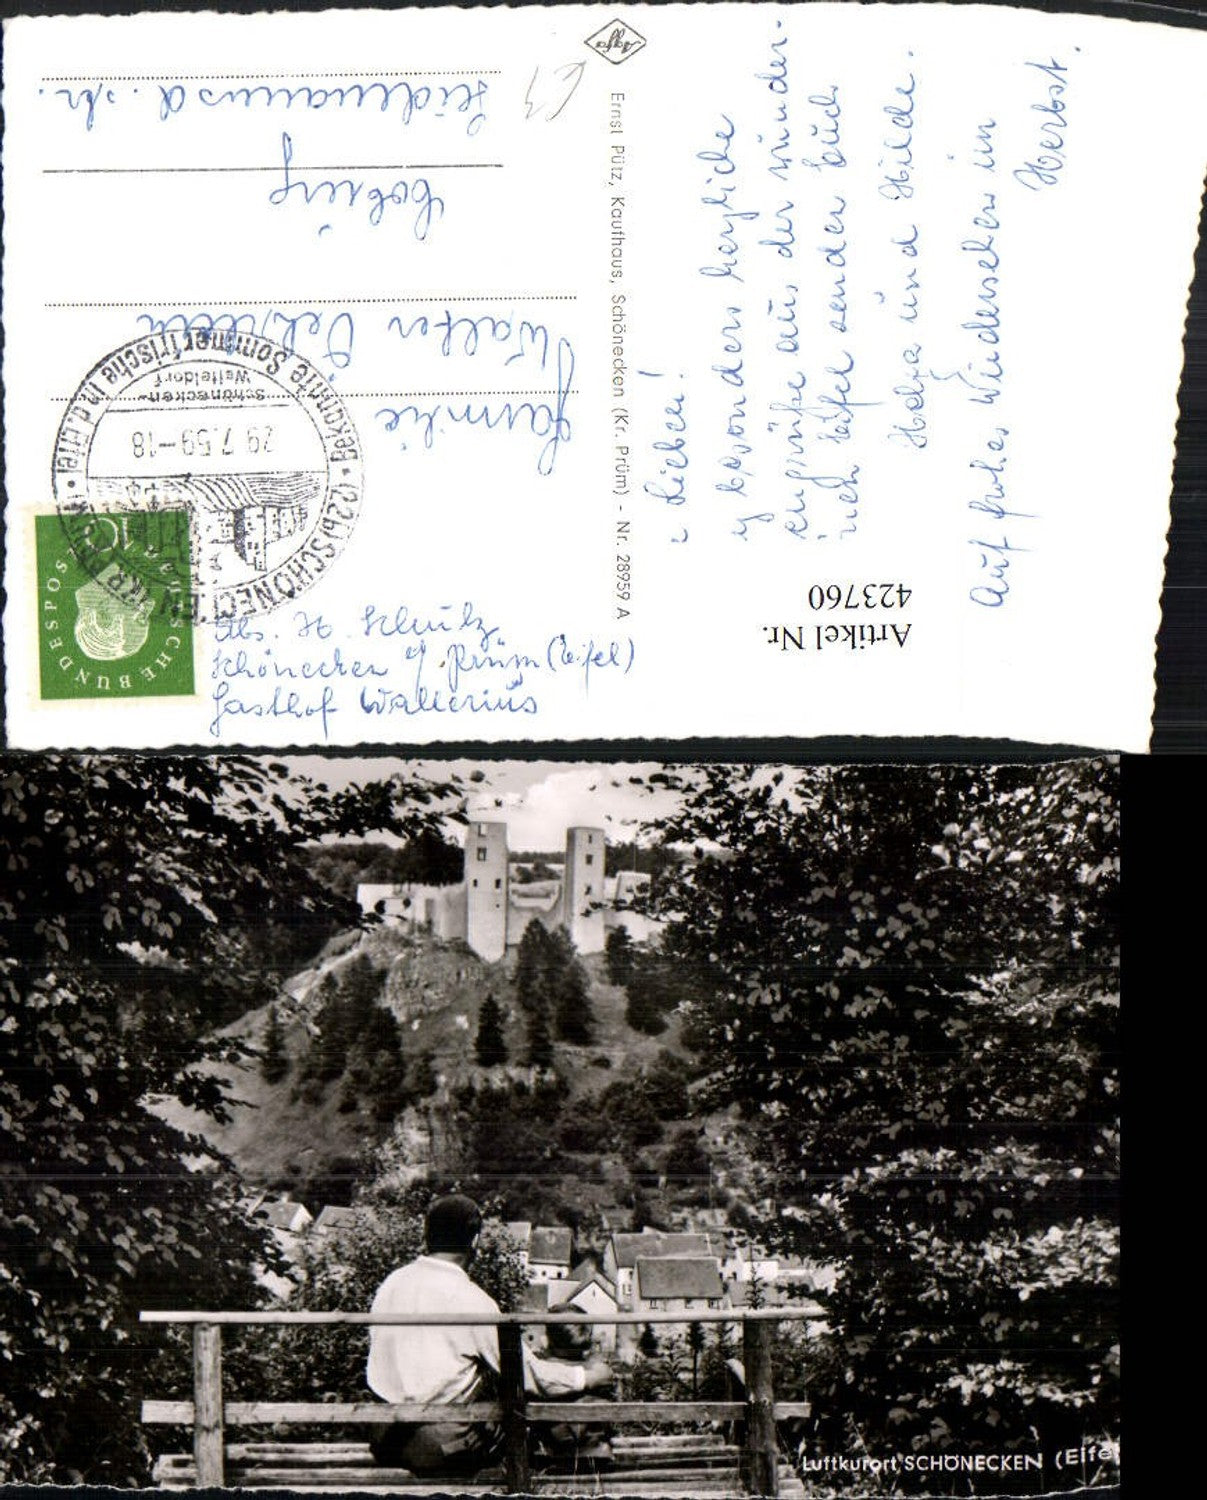 Ihr Lieben!
besonders herzliche
aus der wunder-
Eifel senden Euch
Helga und Hilde.
Auf frohes Wiedersehen im
Herbst.
Agfa
Ernst Pütz, Kaufhaus, Schönecken (Kr. Prüm) - Nr. 28959 A
Familie
Walter
Leipzig
(22b) SCHÖNECKEN (KR PRÜM)
Bekannte Sommerfrische i.d. Eifel
Schönecken-
Wetteldorf
29.7.59-18
DEUTSCHE BUNDESPOST
10
Abs. H. Schulz
Schönecken / Prüm (Eifel)
Gasthof Wallerius
Artikel Nr.
423760
Luftkurort SCHÖNECKEN (Eife